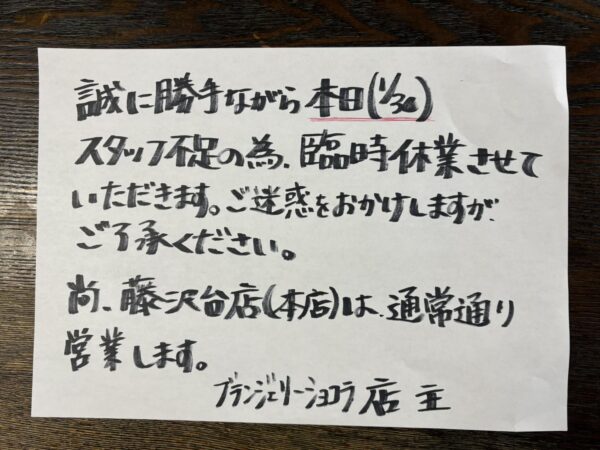 誠に勝手ながら本日(1/30)
スタッフ不足の為、臨時休業させて
いただきます。ご迷惑をおかけしますが、
ご了承ください。
尚、藤沢台店(本店)は、通常通り
営業します。
ブランジェリーショコラ 店主